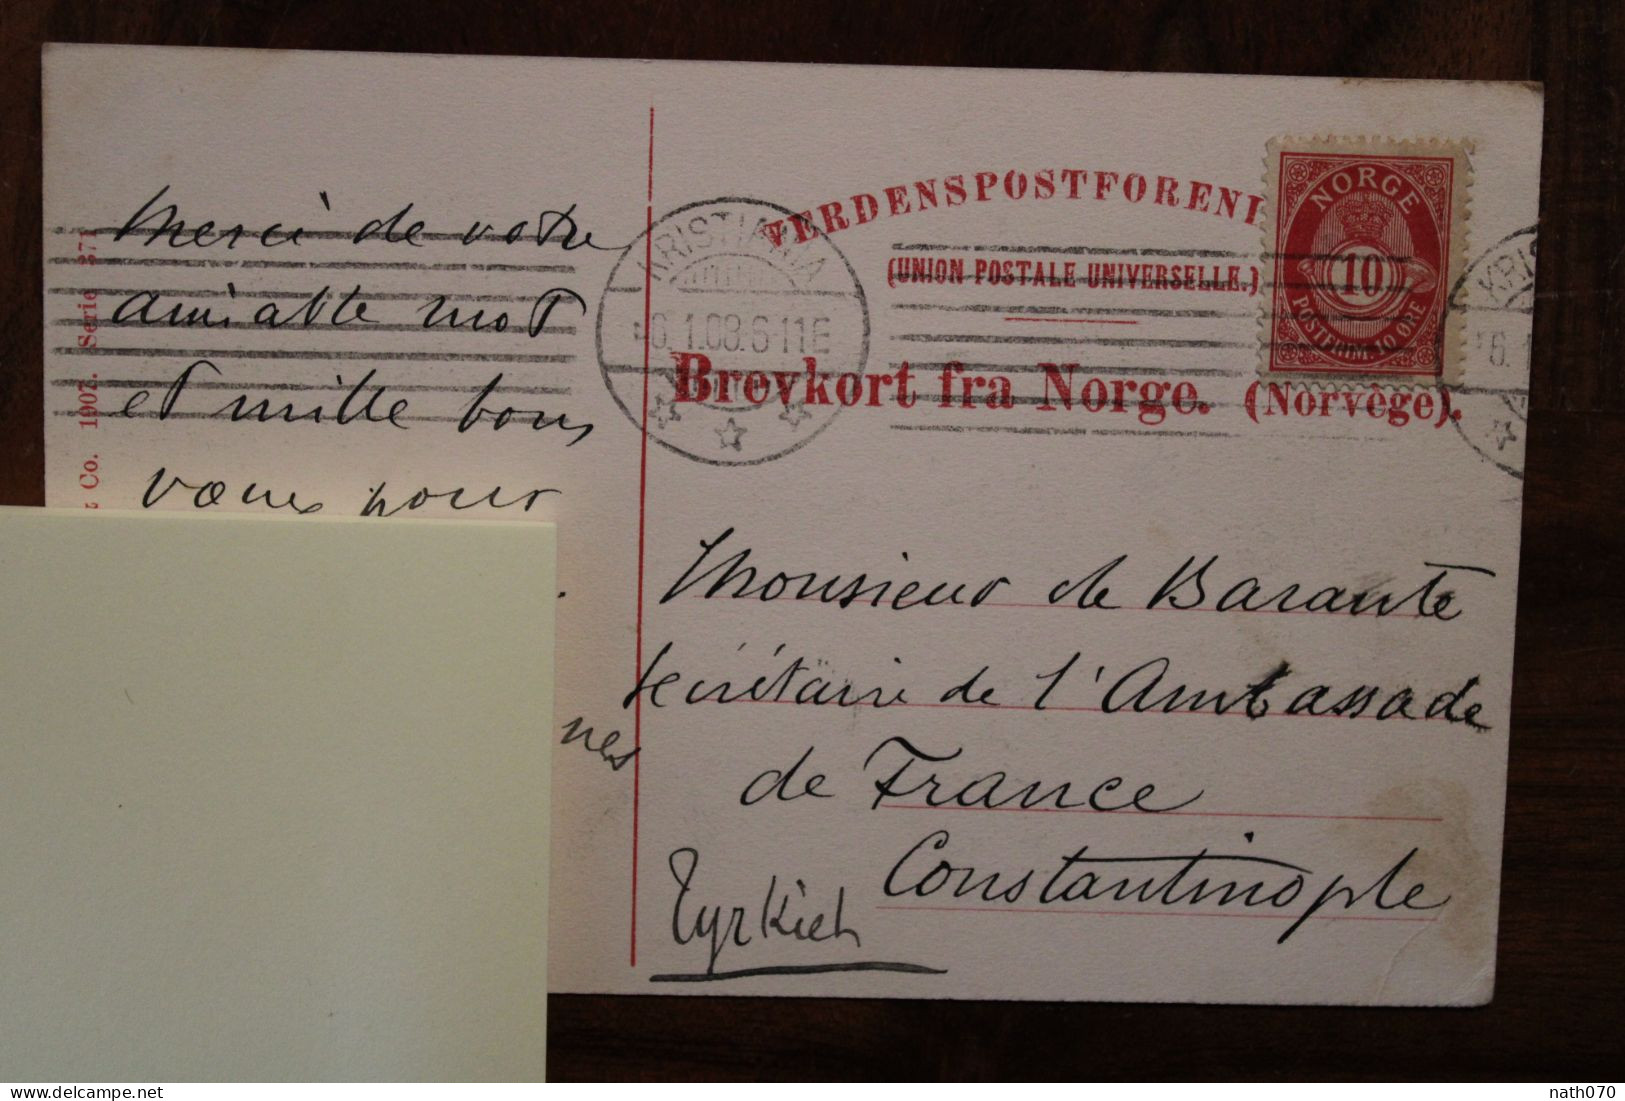 VERDENSPOSTFORENI
(UNION POSTALE UNIVERSELLE.)
Brevkort fra Norge. (Norvège).
NORGE
10
POSTFRIM. 10 ØRE
KRISTIANIA
6.1.08.6-11E
KRIS
Co. 1907. Serie 37
Merci de votre
aimable mot
et mille bons
vœux pour
nes
Monsieur de Barante
Secrétaire de l'Ambassade
de France
Constantinople
Tyrkiet
nath070